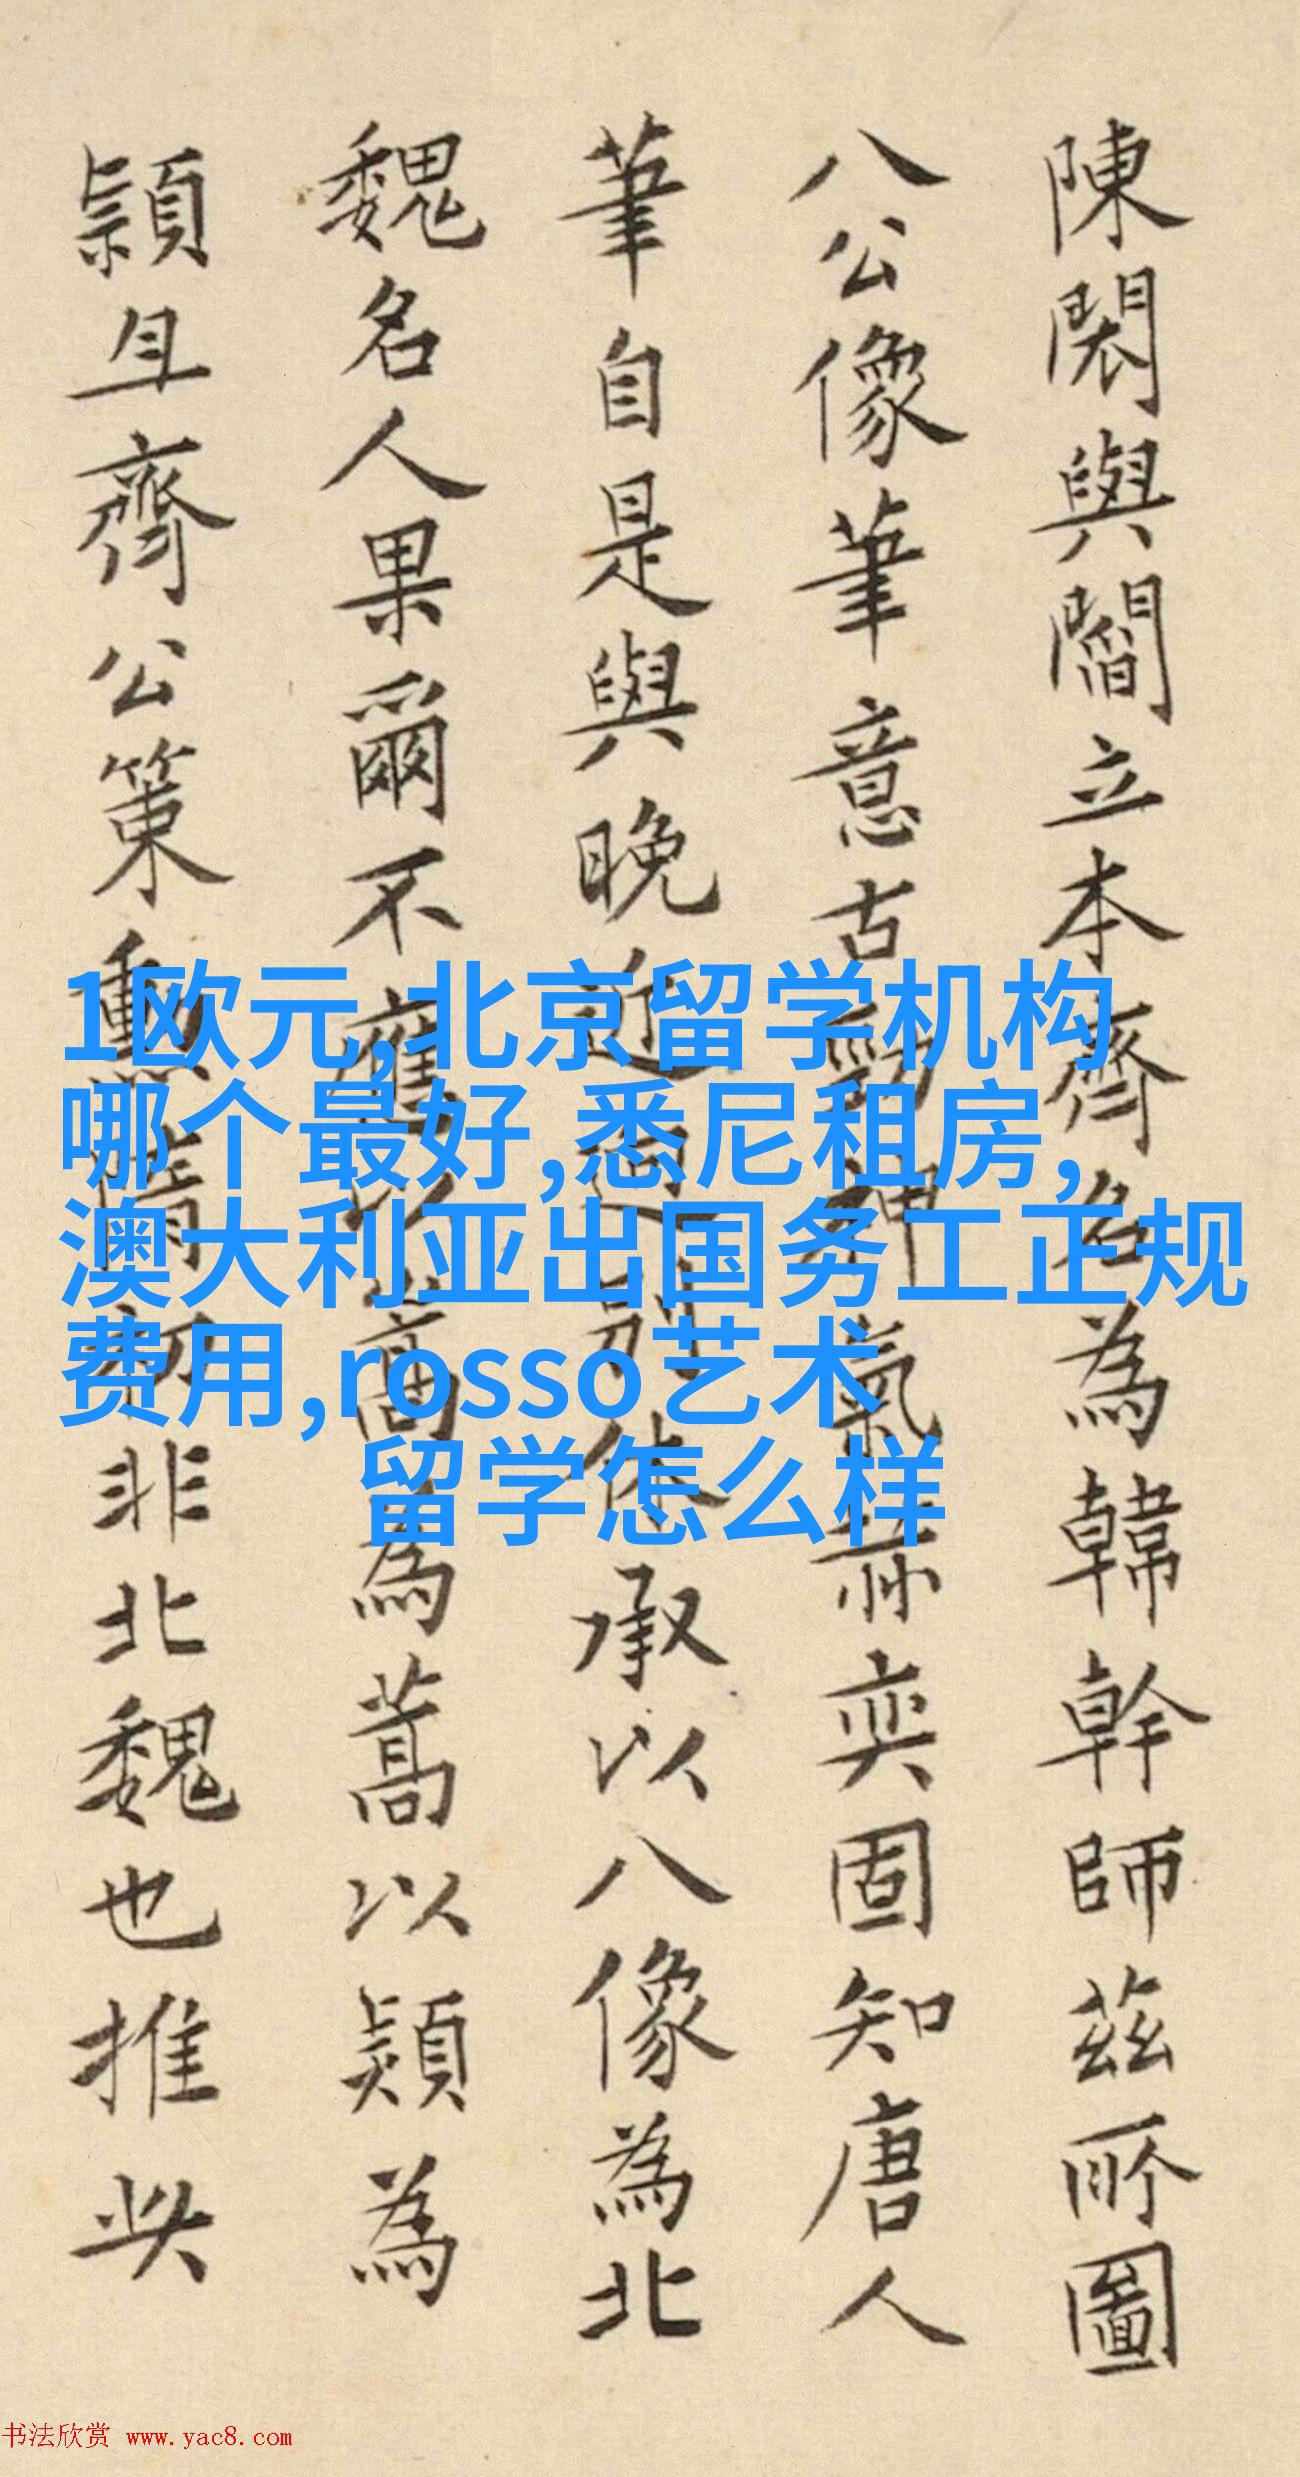 陳閎與閻立本齊名為韓幹師茲所圖
八公像筆意古勁神氣赫奕固知唐人
筆自是與晚近迥別休承以八像為北
魏名人果爾不應以高為蒿以熲為
頴且齊公策勳隋初非北魏也推此
1欧元,北京留学机构
哪个最好,悉尼租房,
澳大利亚出国务工正规
费用,rosso艺术
留学怎么样
书法欣赏 www.yac8.com